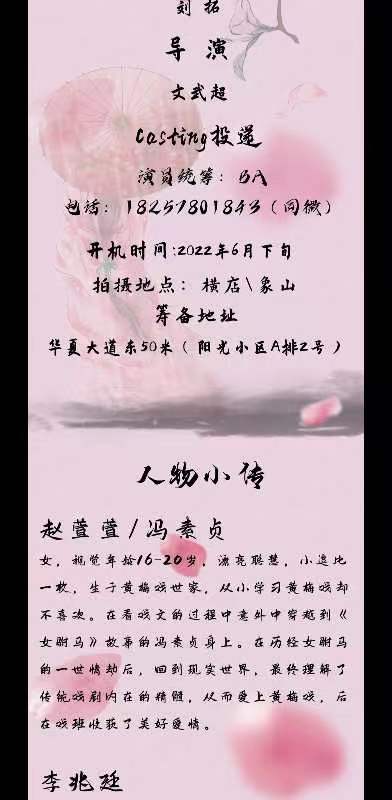 刘拓
导演
文武超
Casting投递
演员统筹：BA
电话：18257801843（同微）
开机时间:2022年6月下旬
拍摄地点：横店\象山
筹备地址
华夏大道东50米（阳光小区A排2号）
人物小传
赵萱萱/冯素贞
女，视觉年龄16-20岁，漂亮聪慧，小逗比
一枚，生于黄梅戏世家，从小学习黄梅戏却
不喜欢。在看戏文的过程中意外中穿越到《
女驸马》故事的冯素贞身上。在历经女驸马
的一世情劫后，回到现实世界，最终理解了
传统戏剧内在的精髓，从而爱上黄梅戏，后
在戏班收获了美好爱情。
李兆廷